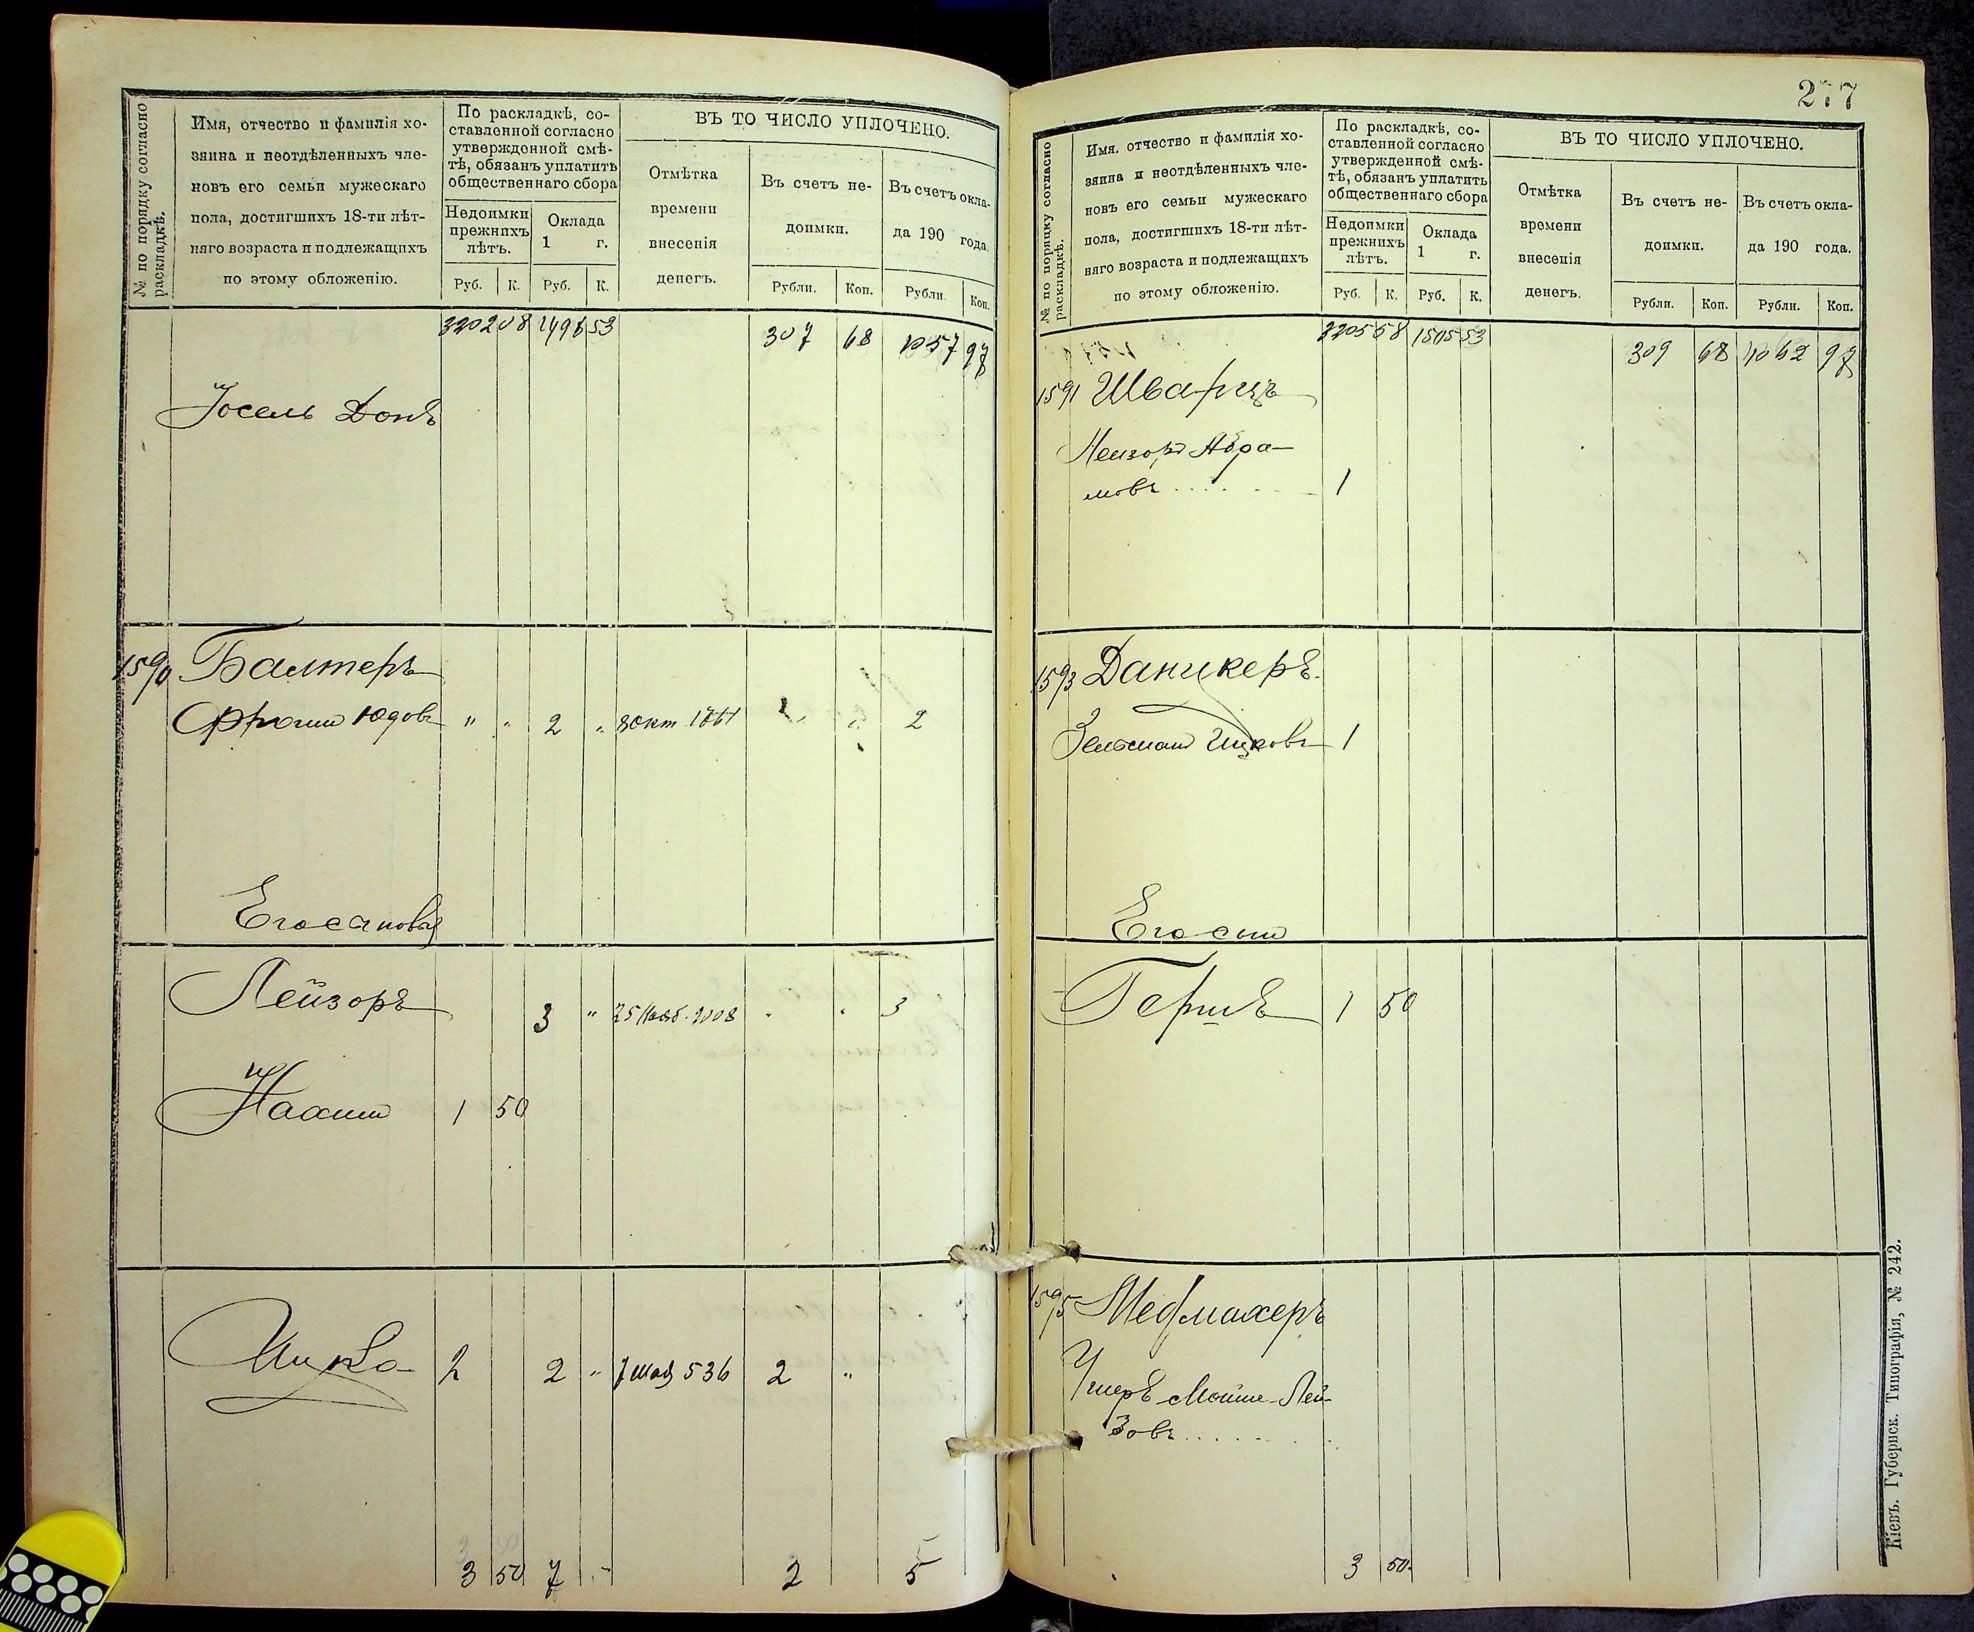 № по порядку согласно
раскладкѣ.
Имя, отчество и фамилія хо-
зяина и неотдѣленныхъ чле-
новъ его семьи мужескаго
пола, достигшихъ 18-ти лѣт-
няго возраста и подлежащихъ
по этому обложенію.
По раскладкѣ, со-
ставленной согласно
утвержденной смѣ-
тѣ, обязанъ уплатить
общественнаго сбора
Недоимки
прежнихъ
лѣтъ.
Оклада
1 г.
Руб. К. Руб. К.
ВЪ ТО ЧИСЛО УПЛОЧЕНО.
Отмѣтка
времени
внесенія
денегъ.
Въ счетъ не-
доимки.
Въ счетъ окла-
да 190 года.
Рубли. Коп. Рубли. Коп.
3202 08 1498 53 307 68 1057 97
Іосель Донъ
1590 Балтеръ
Фроимъ Юдовъ " " 2 " " 2
Его сыновья
Лейзоръ 3 " " " 3
Нахимъ 1 50
Ицко 2 2 " 7 мая 536 2 "
3 50 7 - 2 5
277
№ по порядку согласно
раскладкѣ.
Имя, отчество и фамилія хо-
зяина и неотдѣленныхъ чле-
новъ его семьи мужескаго
пола, достигшихъ 18-ти лѣт-
няго возраста и подлежащихъ
по этому обложенію.
По раскладкѣ, со-
ставленной согласно
утвержденной смѣ-
тѣ, обязанъ уплатить
общественнаго сбора
Недоимки
прежнихъ
лѣтъ.
Оклада
1 г.
Руб. К. Руб. К.
ВЪ ТО ЧИСЛО УПЛОЧЕНО.
Отмѣтка
времени
внесенія
денегъ.
Въ счетъ не-
доимки.
Въ счетъ окла-
да 190 года.
Рубли. Коп. Рубли. Коп.
3205 58 1505 53 309 68 1062 97
1591 Шварцъ
Лейзоръ Абра-
мовъ 1
1593 Данцкеръ.
Зельманъ Ицковъ 1
Его сынъ
Гершъ 1 50
1595 Медмахеръ
Умеръ Мойше-Лей-
Зовъ
3 50
Кіевъ. Губернск. Типографія, № 242.